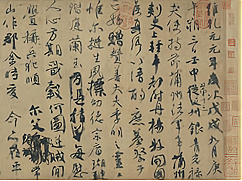 維乾元元年歲次戊戌九月庚
午朔三日壬申第十三叔銀青光祿
夫使持節蒲州諸軍事蒲州
刺史上輕車都尉丹楊縣開國
侯真卿以清酌庶羞祭于
亡姪贈贊善大夫季明之靈
惟爾挺生夙標幼德宗廟瑚璉
階庭蘭玉每慰
人心方期戩穀何圖逆賊閒
釁稱兵犯順
爾父
山作郡余時受
命亦在平